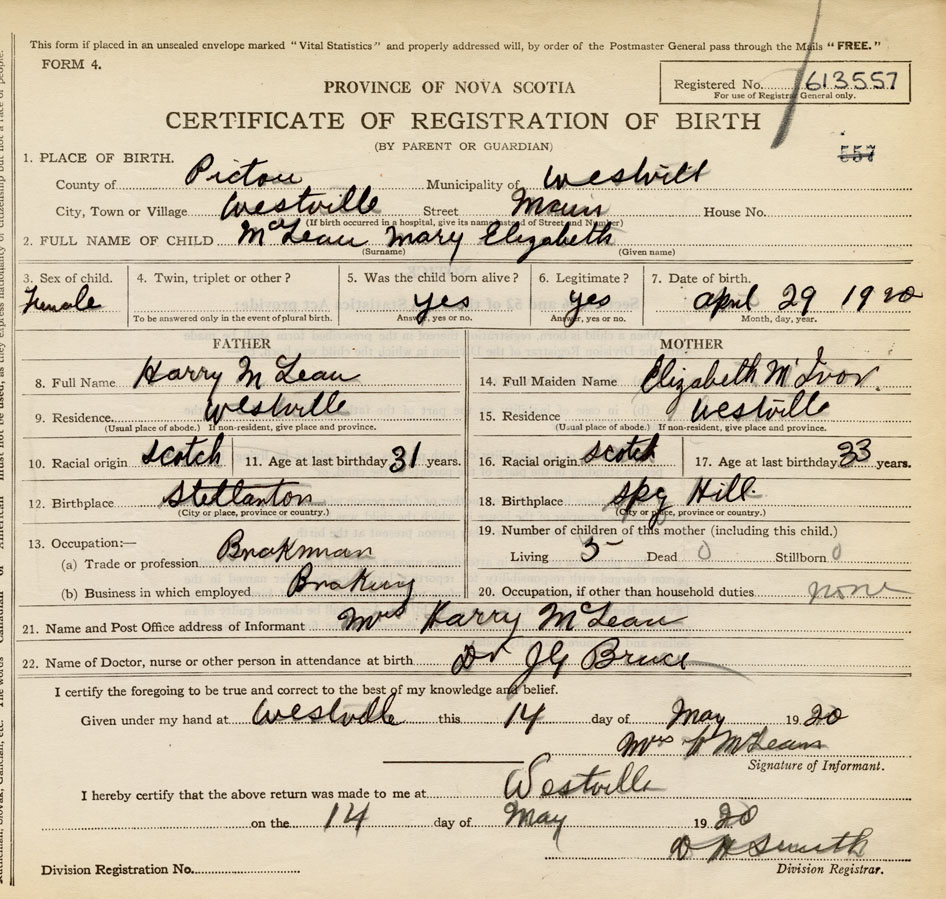 This form if placed in an unsealed envelope marked "Vital Statistics" and properly addressed will, by order of the Postmaster General pass through the Mails "FREE."
FORM 4.
Registered No. 613557
For use of Registrar General only.
PROVINCE OF NOVA SCOTIA
CERTIFICATE OF REGISTRATION OF BIRTH
(BY PARENT OR GUARDIAN)
557
1. PLACE OF BIRTH.
County of Pictou Municipality of Westvill
City, Town or Village Westville Street Main House No.
(If birth occurred in a hospital, give its name instead of Street and Number)
2. FULL NAME OF CHILD McLean Mary Elizabeth
(Surname) (Given name)
3. Sex of child. 4. Twin, triplet or other? 5. Was the child born alive? 6. Legitimate? 7. Date of birth.
Female yes yes April 29 1920
To be answered only in the event of plural birth. Answer, yes or no. Answer, yes or no. Month, day, year.
FATHER MOTHER
8. Full Name Harry McLean 14. Full Maiden Name Elizabeth McIvor.
9. Residence. Westville 15. Residence Westville
(Usual place of abode.) If non-resident, give place and province. (Usual place of abode.) If non-resident, give place and province.
10. Racial origin Scotch 11. Age at last birthday 31 years. 16. Racial origin Scotch 17. Age at last birthday 33 years.
12. Birthplace Stellarton 18. Birthplace Spy Hill.
(City or place, province or country.) (City or place, province or country.)
13. Occupation:— 19. Number of children of this mother (including this child.)
(a) Trade or profession Brakman Living 5 Dead 0 Stillborn 0
(b) Business in which employed Braking 20. Occupation, if other than household duties. none
21. Name and Post Office address of Informant Mrs Harry McLean
22. Name of Doctor, nurse or other person in attendance at birth Dr JG Bruce
I certify the foregoing to be true and correct to the best of my knowledge and belief.
Given under my hand at Westville this 14 day of May 1920
Mrs H McLean
Signature of Informant.
I hereby certify that the above return was made to me at Westville
on the 14 day of May 1920
D H Smith
Division Registration No. Division Registrar.